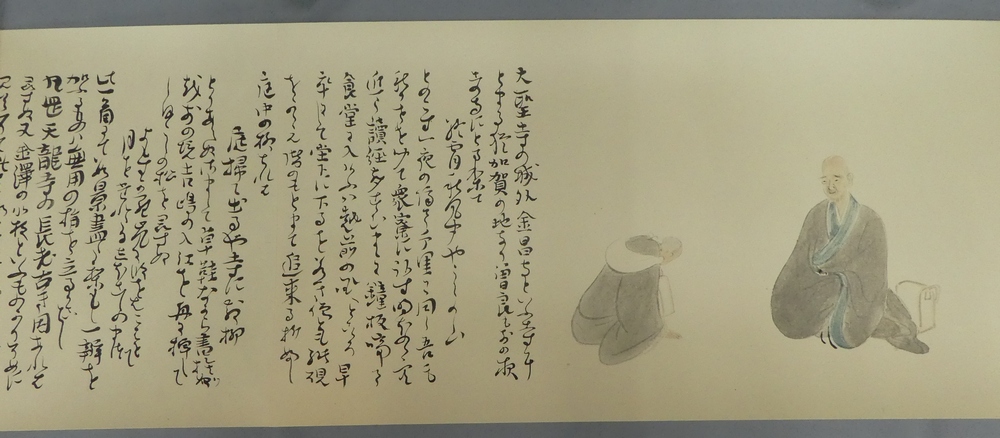 大聖寺の城外全昌寺といふ寺に
とまる猶加賀の地也曽良も前の夜
この寺にとまりて
終宵秋風聞やうらの山
とのこす一夜の隔千里に同し吾も
秋風を聞て衆寮に臥は明ほのゝ空
近う讀経声すむまゝに鐘板鳴て
食堂に入けふは越前の国へと心早
卒にして堂下に下るを若き僧とも紙硯
をかゝえ階のもとまて追来る折節
庭中の柳ちれは
庭掃て出るや寺にちる柳
とりあへぬさまして草鞋なから書捨つ
越前の境吉崎の入江を舟に棹して
しほこしの松を尋ぬ
よもすから嵐に波をはこはせて
月をたれたるしほこしの松
此一首にて数景盡たり もし一辨を
加るものは無用の指を立るかことし
丸岡天龍寺の長老古き因あれは
尋ぬ又金澤の北枝といふものかりそめに